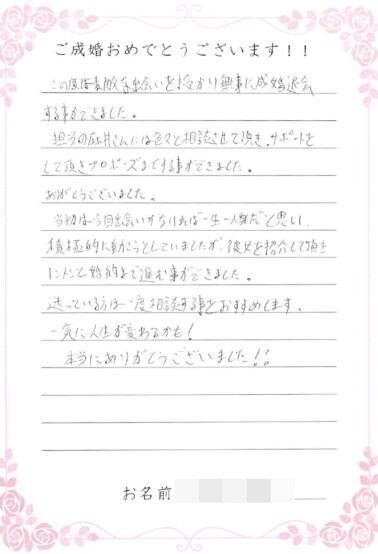 ご成婚おめでとうございます！！
この度は素敵な出会いを授かり無事に成婚退会
する事ができました。
担当の酒井さんには色々と相談させて頂き、サポートを
して頂きプロポーズまでする事ができました。
ありがとうございました。
当初は今回出会いがなければ一生一人身だと思い、
積極的に動こうとしていましたが、彼女を紹介して頂き
トントンと婚約まで進む事ができました。
迷っている方は一度相談する事をおすすめします。
一気に人生が変わるかも！
本当にありがとうございました！！
お名前